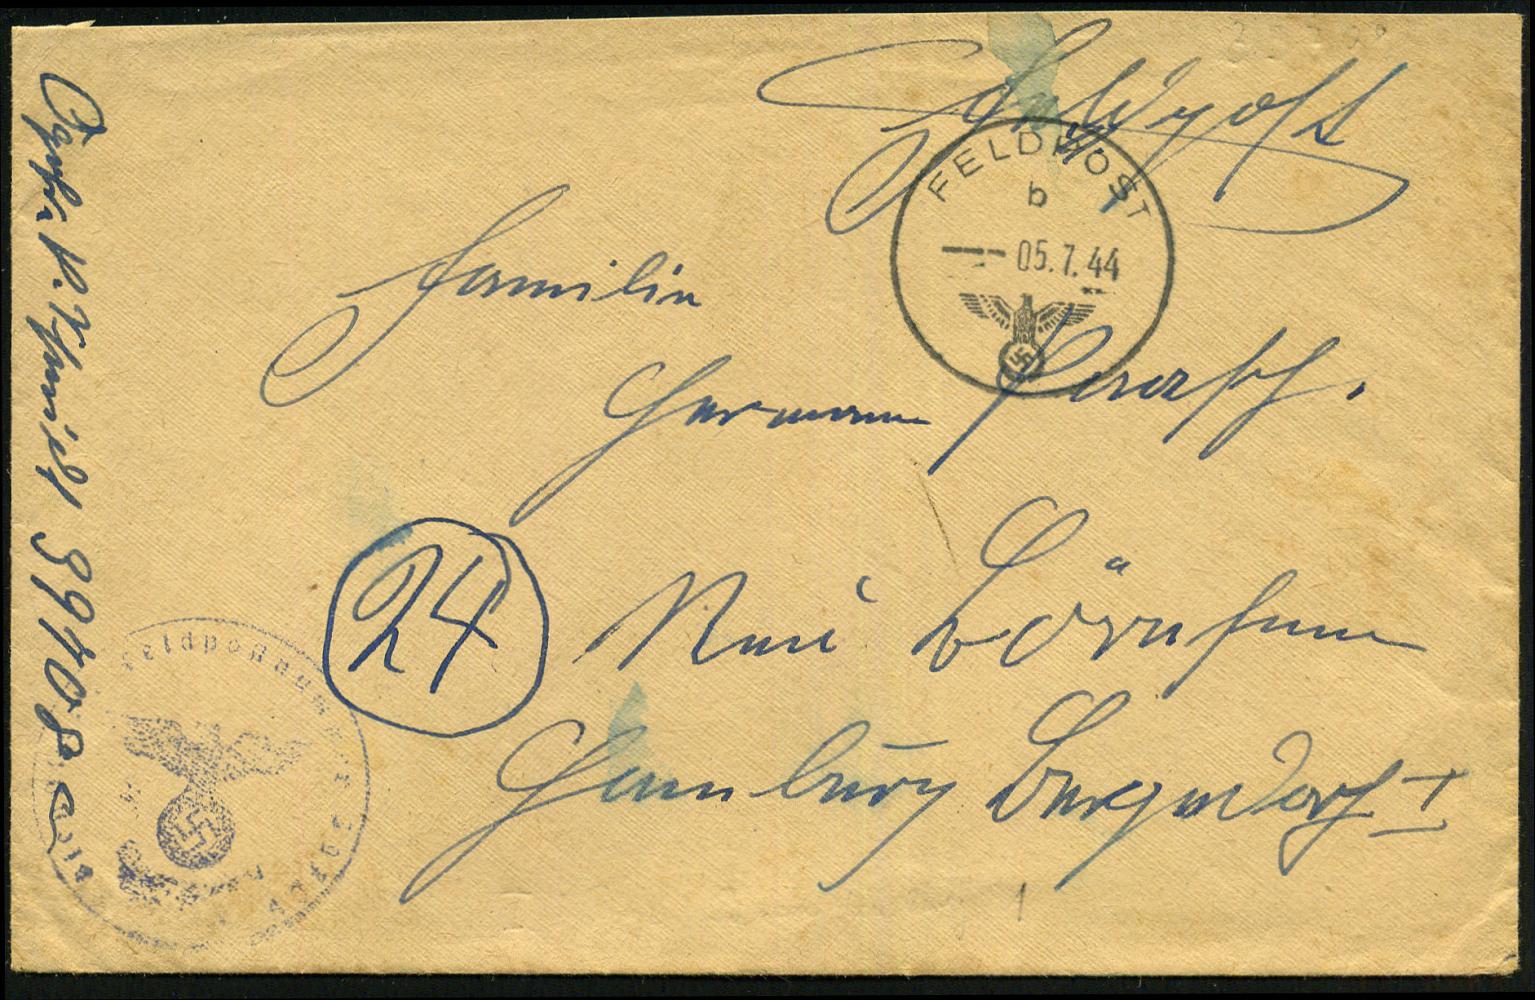 Feldpost
FELDPOST
b
05.7.44
Familie
Hermann
24
Neu Börnsen
Hamburg Bergedorf I
Schmidt 39408 a
Feldpostnummer